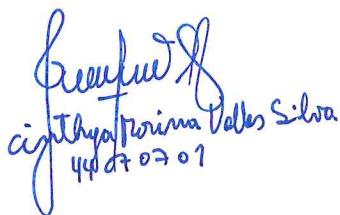 Cinthya Morina Valles Silva
44070701